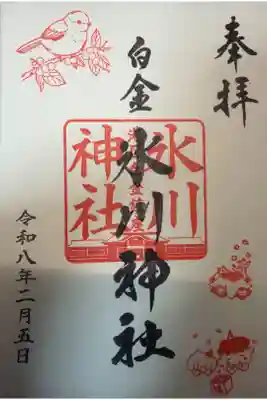 奉拝
白金
氷川神社
氷川
神社
令和八年二月五日